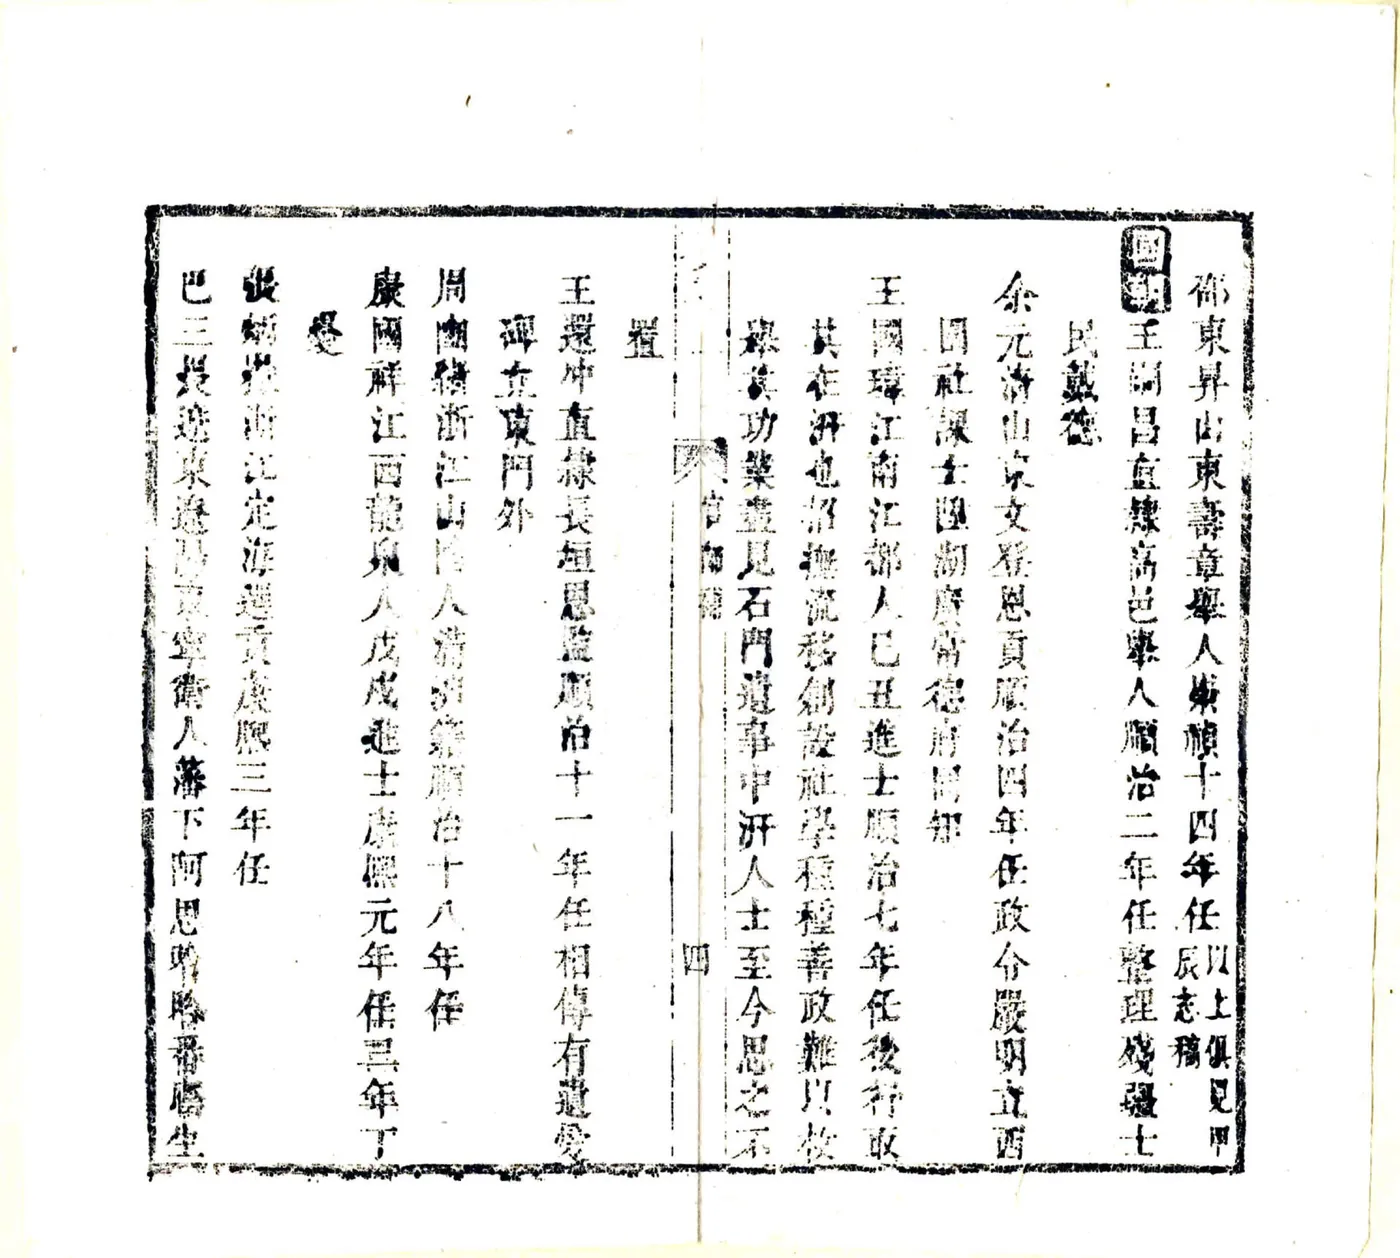 邵東昇山東壽章舉人崇禎十四年任以上俱見甲辰志稿
國朝王嗣昌直隸高邑舉人順治二年任整理殘疆士
民戴德
余元濟山東文登恩貢順治四年任政令嚴明立西
園社課士陞湖廣常德府同知
王國瑋江南江都人己丑進士順治七年任後行取
其在汧也招撫流移創設社學種種善政難以枚
舉其功業盡見石門遺事中汧人士至今思之不
置
王還冲直隸長垣恩監順治十一年任相傳有遺愛
碑立東門外
周 浙江山陰人 籍順治十八年任
康國祥江西龍泉人戊戌進士康熙元年任三年丁
憂
張 浙江定海選貢康熙三年任
巴三 遼東遼陽東寧衛人藩下阿思哈哈番廕生
四